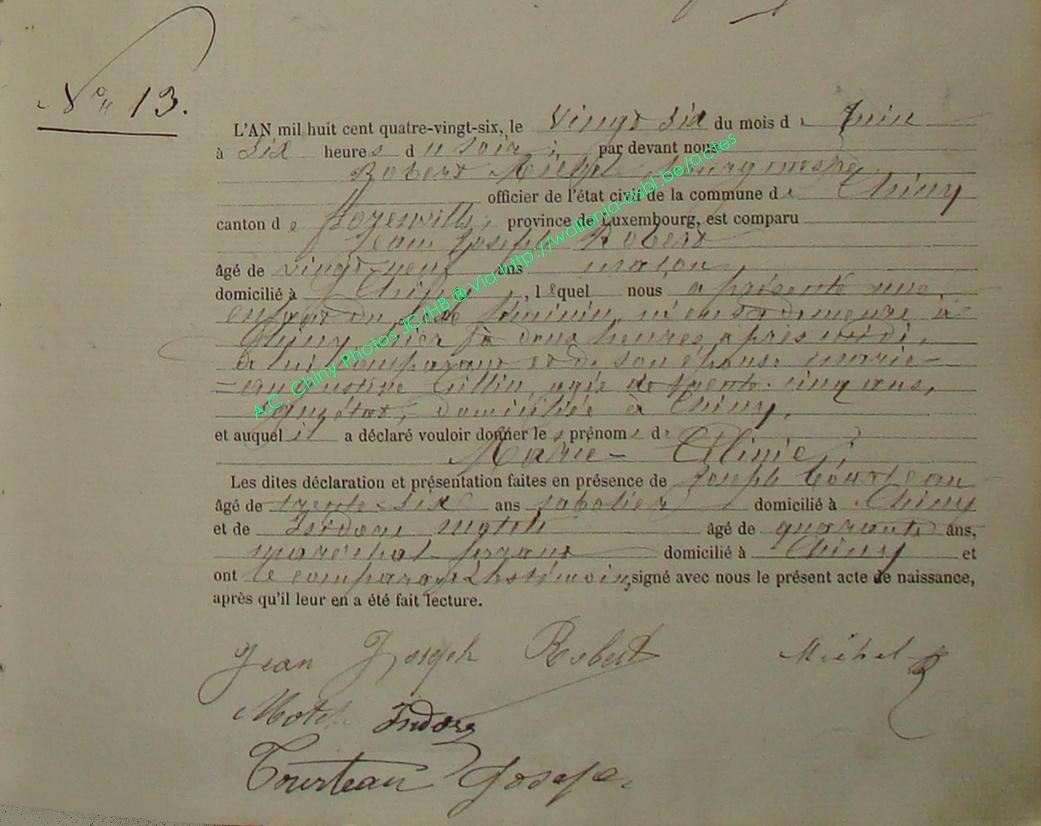 N° 13.
L'AN mil huit cent quatre-vingt-six, le Vingt Six du mois de Juin
à Six heures du soir ; par devant nous
Robert Michel bourgmestre
officier de l'état civil de la commune de Chiny
canton de province de Luxembourg, est comparu
Jean Joseph Robert
âgé de vingt neuf ans maçon,
domicilié à Chiny, lequel nous a présenté une
enfant du sexe féminin, née en sa demeure à
Chiny hier à deux heures après midi,
à lui comparant et de son épouse marie-
agée de trente cinq ans,
sans état, domiciliée à Chiny,
et auquel il a déclaré vouloir donner les prénoms de
Marie-
Les dites déclaration et présentation faites en présence de Joseph Tourteau
âgé de trente-six ans sabotier domicilié à Chiny
et de Isidore âgé de quarante ans,
maréchal ferrant domicilié à Chiny et
ont le comparant & les témoins, signé avec nous le présent acte de naissance,
après qu'il leur en a été fait lecture.
Jean Joseph Robert Michel R
Isidore
Tourteau Joseph
A.C. Chiny Photos JC/HB @ Via http://wallonia-orbl.be/actes